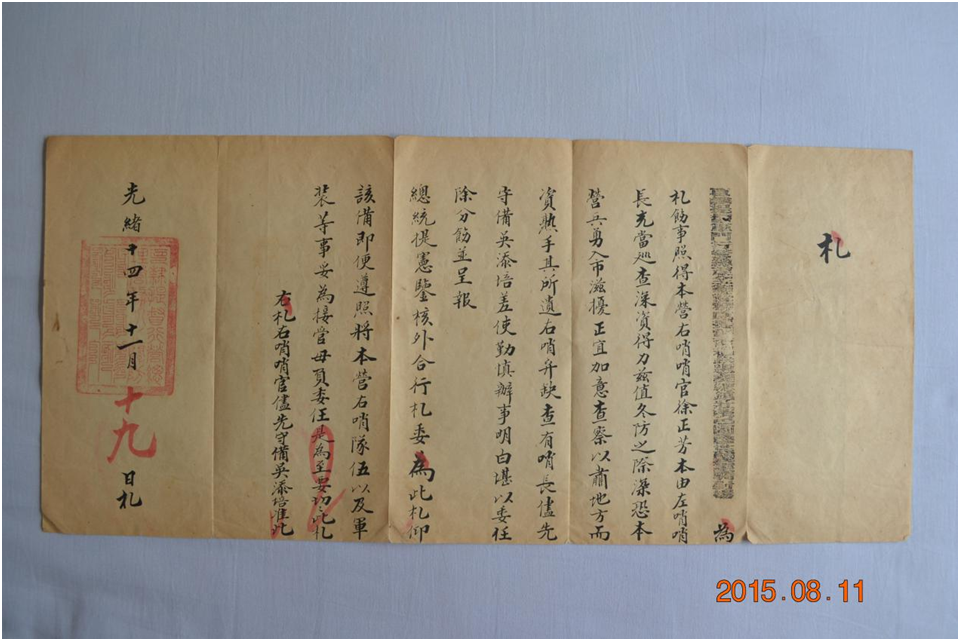 札
為
札飭事照得本營右哨哨官徐正芳本由左哨哨
長充當巡查深資得力茲值冬防之際深恐本
營兵勇入市滋擾正宜加意查察以肅地方而
資熟手其所遺右哨弁缺查有哨長儘先
守備吳添培差使勤慎辦事明白堪以委任
除分飭並呈報
總統提憲鑒核外合行札委為此札仰
該備即便遵照將本營右哨隊伍以及軍
裝等事妥為接管毋負委任是為至要切切此札
右札右哨哨官儘先守備吳添培准此
光緒十四年十一月十九日札
2015.08.11